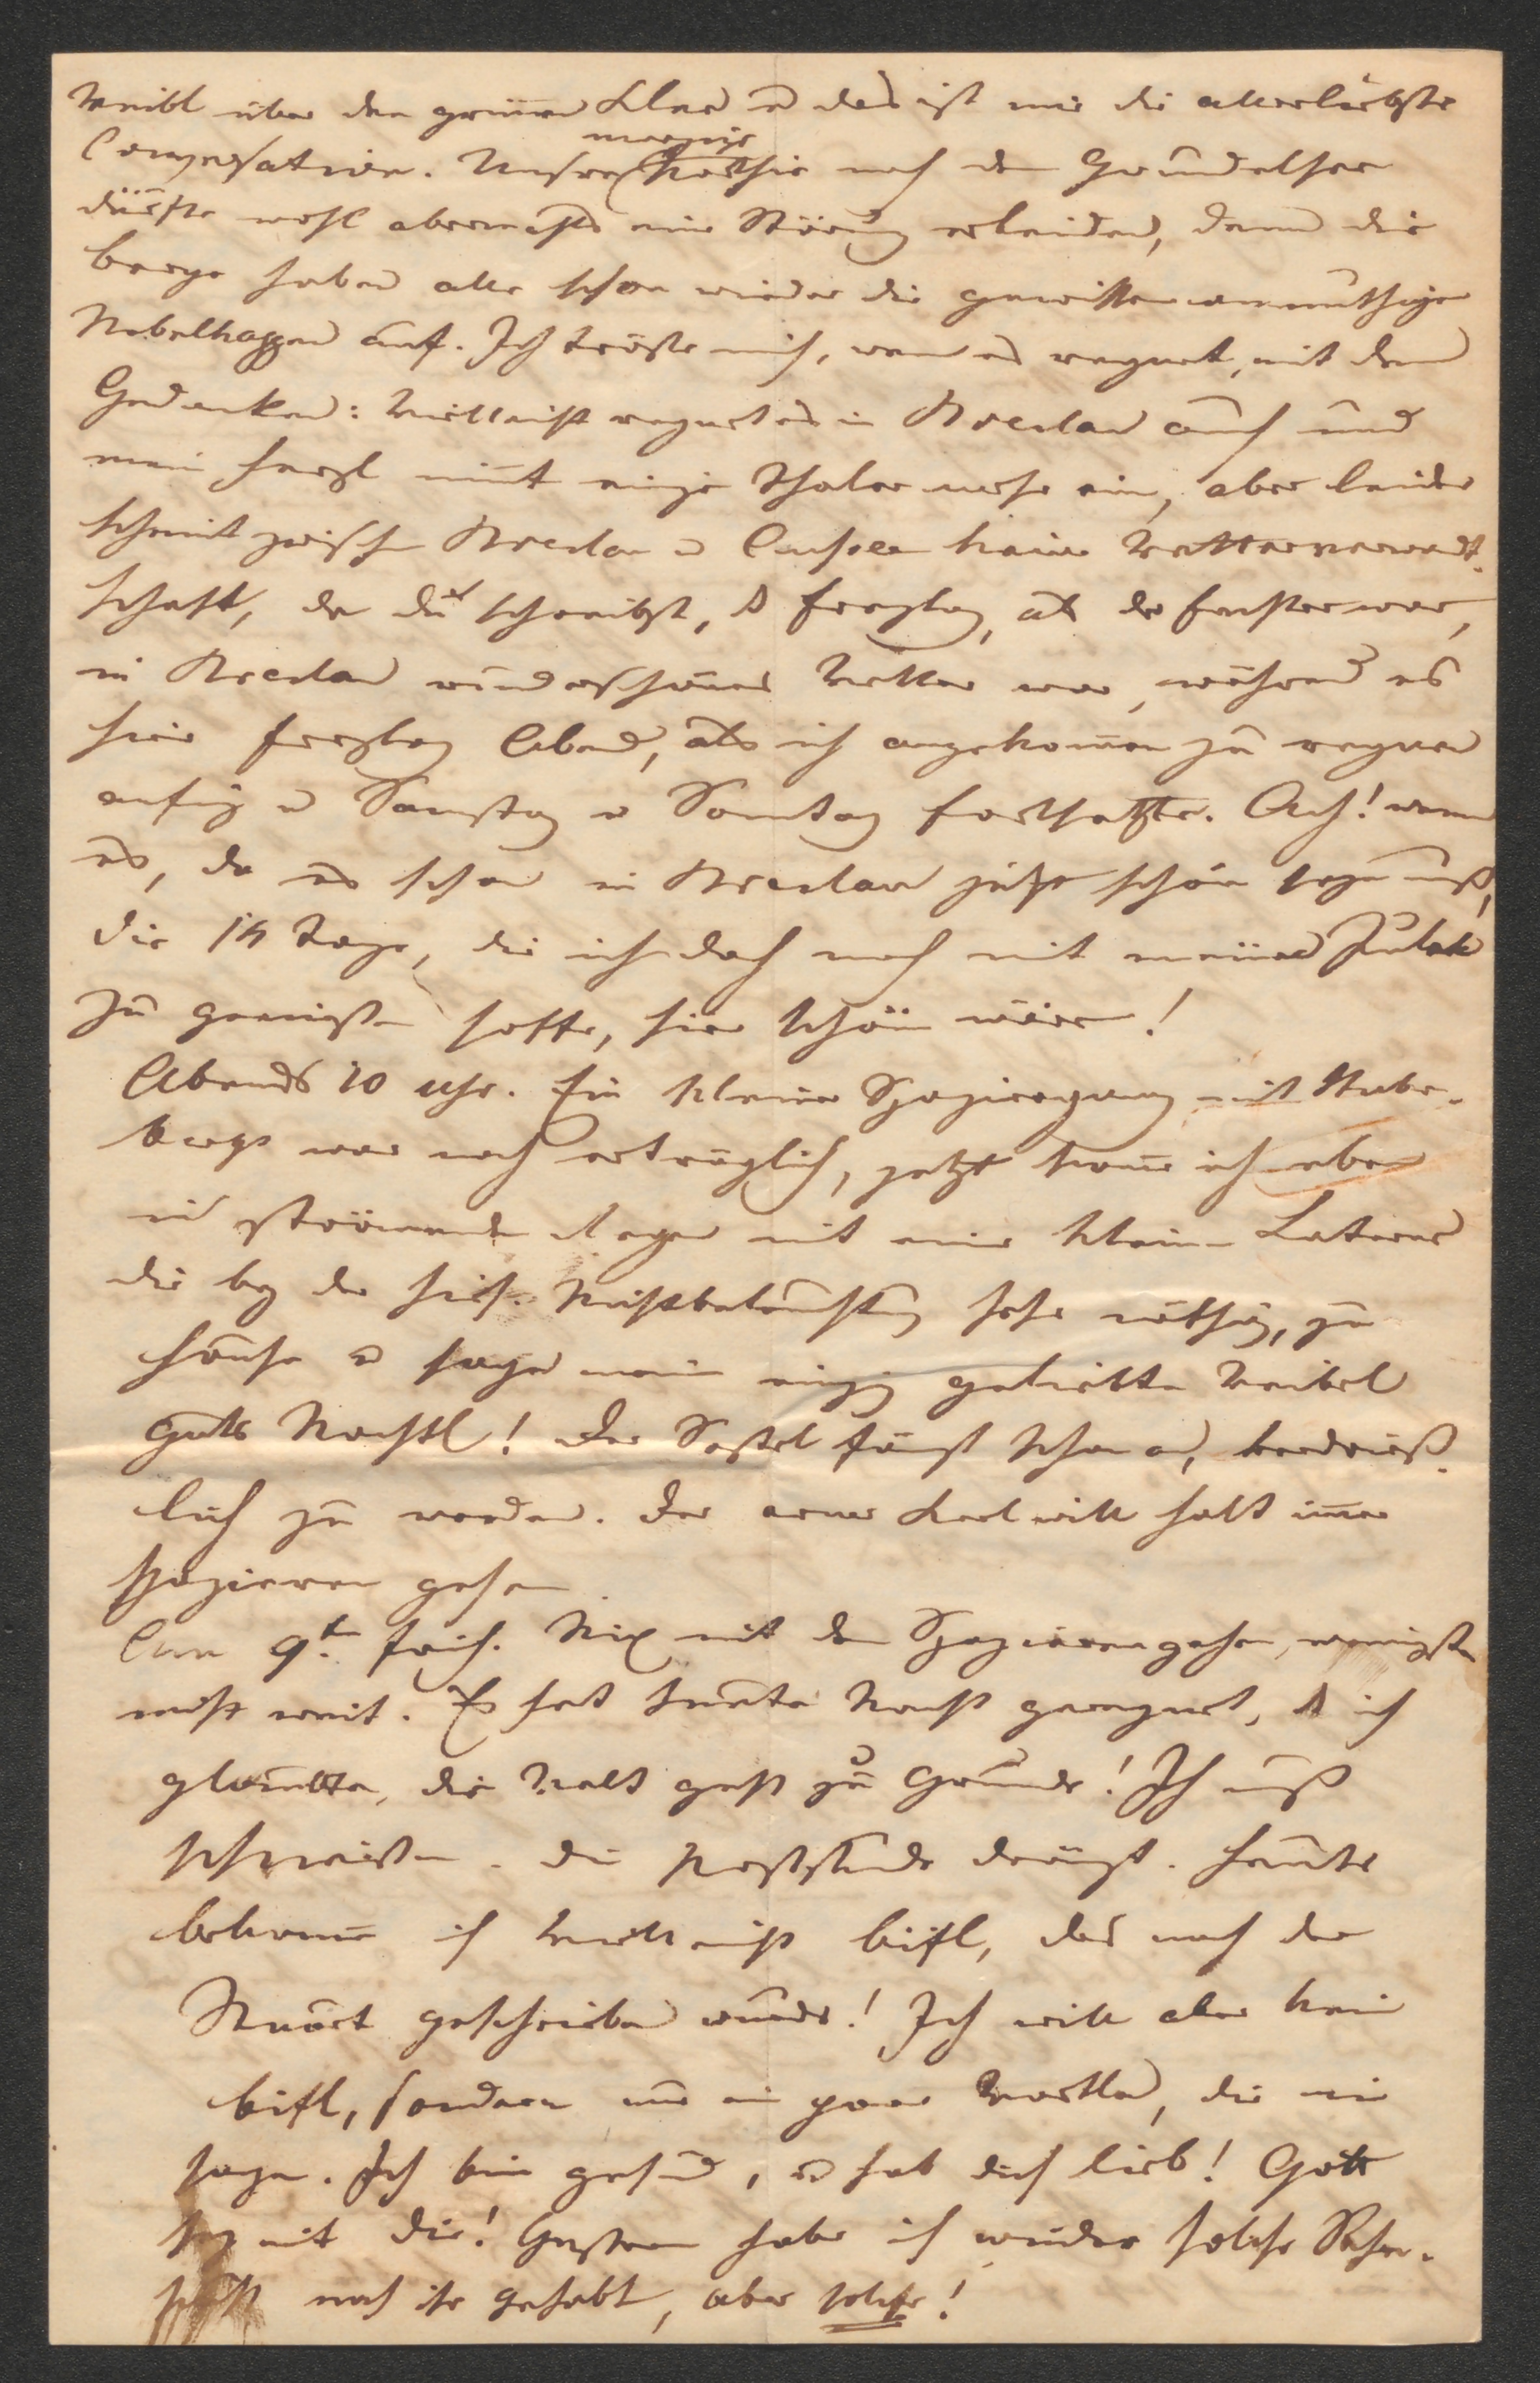 Weibl über den grünen Klee u das ist mir die allerliebste
Conversation. Unsre Parthie nach dem Grundelsee
morgige
dürfte wohl abermals eine Störung erleiden, denn die
Berge haben alle schon wieder die gewitteranmuthigen
Nebelkappen auf. Ich tröste mich, wenn es regnet, mit dem
Gedanken: Vielleicht regnet es in Breslau auch und
mein Herzl nimt einige Thaler mehr ein, aber leider
scheint zwischen Breslau u Aussee keine Wetterverwandt-
schaft, da du schreibst, d Freytag, als der Fechter war,
in Breslau wunderschönes Wetter war, während es
hier Freytag Abend, als ich angekomen zu regnen
anfing u Samstag u Sonntag fortsetzte. Ach! wenn
es, da es schon in Breslau jetzt schön seyn muß,
die 14 Tage, die ich doch noch mit meiner
zu genießen hoffe, hier schön wäre!
Abends 10 Uhr. Ein kleiner Spaziergang mit Stuben-
war noch erträglich, jetzt kome ich eben
in strömenden Regen mit einer kleinen Laterne
die bey der hies. Nichtbeleuchtung sehr nöthig, zu
Hause u sage mein einzig geliebten Weibel
gute Nachtl! Der Sessel fängt schon an, verdrieß-
lich zu werden. Der arme Kerl will halt imer
spazieren gehen
Am 9t. Früh. Nix mit dem Spazierengehen, wenigstens
nicht weit. Es hat heute Nacht geregnet, d ich
glaubte, die Welt geht zu Grunde! Ich muß
schließen. Die Poststunde drängt. Heute
bekome ich vielleicht Bifl, das nach der
Stuart geschrieben wurde! Ich will aber kein
Bifl, sondern nur ein paar Wortln, die mir
sagen. Ich bin gesund, u hab dich lieb! Gott
sey mit dir! Gestern habe ich wieder solche Sehn-
sucht nach ihr gehabt, aber solche!